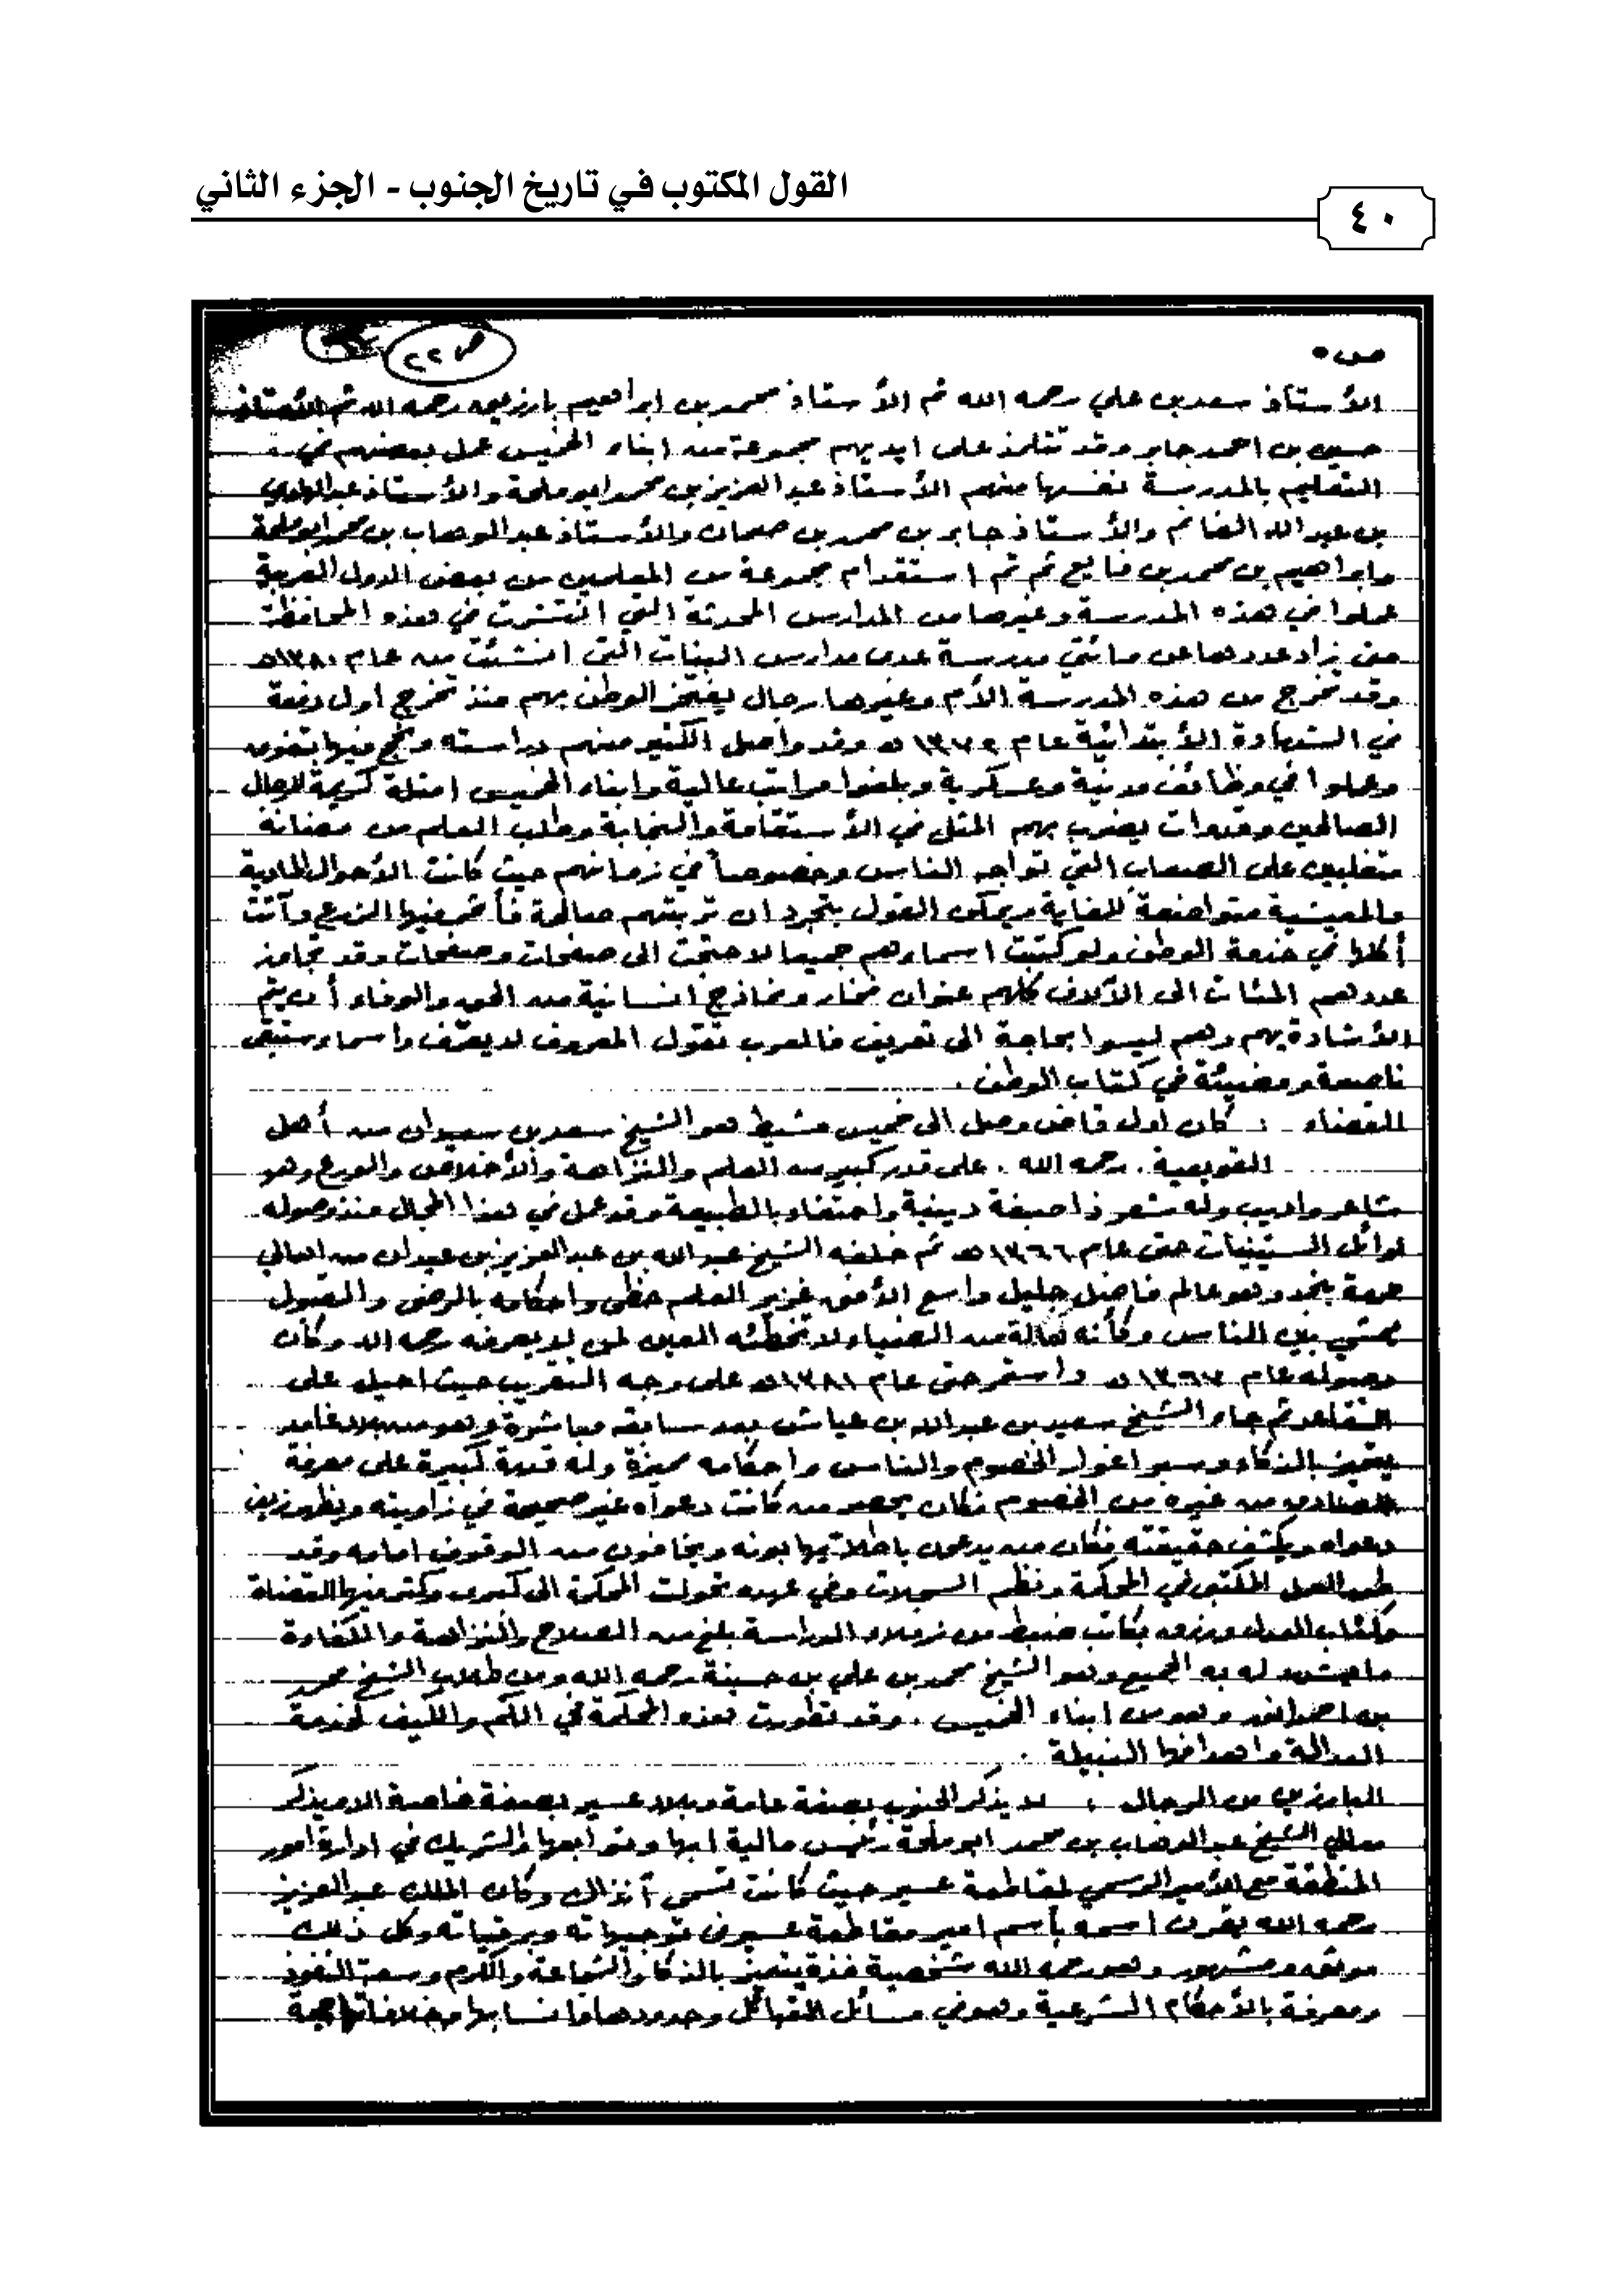 القول المكتوب في تاريخ الجنوب - الجزء الثاني
٤٠
ص٥
ص ٢٢
الأستاذ سعد بن علي رحمه الله ثم الأستاذ محمد بن ابراهيم بارزيق رحمه الله ثم الأستاذ
حسين بن احمد جابر وقد تتلمذ على ايديهم مجموعة من ابناء الخميس عمل بعضهم في
التعليم بالمدرسة نفسها منهم الأستاذ عبدالعزيز بن محمد ابوملحة والأستاذ عبدالهادي
بن عبدالله الغانم والأستاذ جابر بن محمد بن صمان والأستاذ عبدالوهاب بن محمد ابوملحة
وابراهيم بن محمد بن فايع ثم تم استقدام مجموعة من المعلمين من بعض الدول العربية
عملوا في هذه المدرسة وغيرها من المدارس المحدثة التي انتشرت في هذه المحافظة
حتى زاد عددها عن مائتي مدرسة عدى مدارس البنات التي انشئت منه عام ١٣٨٠هـ
وقد تخرج من هذه المدرسة الأم وغيرها رجال يفتخر الوطن بهم منذ تخرج اول دفعة
في الشهادة الأبتدائية عام ١٣٧٢هـ وقد واصل الكثير منهم دراسته ونجح فيها بتفوق
وعملوا في وظائف مدنية وعسكرية وبلغوا مراتب عالية وابناء الخميس امثلة كريمة للرجال
الصالحين وقدوات يضرب بهم المثل في الأستقامة والنجابة وطلب العلم من مضانه
متغلبين على الصعاب التي تواجه الناس وخصوصاً في زمانهم حيث كانت الأحوال المادية
والمعيشية متواضعة للغاية ويمكن القول بتجرد ان تربتهم صالحة فأثمر فيها الزرع وآتت
أكلها في خدمة الوطن ولو كتبت اسماءهم جميعا لاحتجت الى صفحات وصفحات وقد تجاوز
عددهم المئات الى الآلاف كلهم عنوان فخار ونماذج انسانية من الحق والوفاء أن يتم
الأشادة بهم وهم ليسوا بحاجة الى تعريف فالعرب تقول المعروف لا يعرف واسماء ستبقى
ناصعة ومضيئة في كتاب الوطن .
القضاء : كان اول قاض وصل الى خميس مشيط هو الشيخ سعد بن سعيدان من أهل
القويعية . رحمه الله . على قدر كبير من العلم والنزاهة والأخلاص والورع وهو
شاعر واديب وله شعر ذا صبغة دينية واحتفاء بالطبيعة وقد عمل في هذا المجال منذ وصوله
اوائل الستينيات حتى عام ١٣٦٦هـ ثم خلفه الشيخ عبدالله بن عبدالعزيز بن عبدان من اهالي
حرمة بنجد وهو عالم فاضل جليل واسع الأفق غزير العلم حظي واحكامه بالرضى والقبول
يمشي بين الناس وكأنه هالة من الضياء لا تخطئه العين لمن لا يعرفه رحمه الله وكان
وصوله عام ١٣٦٧هـ واستمر حتى عام ١٣٨١هـ على وجه التقريب حيث احيل على
التقاعد ثم جاء الشيخ سعيد بن عبدالله بن عياش بعد سابقه مباشرة وهو من بلاد غامد
يتميز بالذكاء وسبر اغوار الخصوم والناس واحكامه مميزة وله قدرة كبيرة على معرفة
الصادق من غيره من الخصوم فكان يحصر من كانت دعواه غير صحيحة في زاويته ويظهر زيف
دعواه ويكشف حقيقته فكان من يدعون باطلا يهابونه ويخافون من الوقوف امامه وقد
طور العمل المكتبي في المحكمة ونظم السجلات وفي عهده تحولت المحكمة الى كبرى وكثر فيها القضاة
وكتاب العدل ورزق بكاتب ضبط من زملاء الدراسة بلغ من الصلاح والنزاهة والكفاءة
ما يشهد له به الجميع وهو الشيخ محمد بن علي بن حسينة رحمه الله ومن طلاب الشيخ محمد
بن احمد انور وهو من ابناء الخميس . وقد تطورت هذه المحكمة في الكم والكيف لخدمة
العدالة واهدافها النبيلة .
البارزين من الرجال : لا يذكر الجنوب بصفة عامة وبلاد عسير بصفة خاصة الا ويذكر
معالي الشيخ عبدالوهاب بن محمد ابوملحة رئيس مالية ابها وتوابعها والشريك في ادارة امور
المنطقة مع الأمير الرسمي لمقاطعة عسير حيث كانت تسمى آنذاك وكان الملك عبدالعزيز
رحمه الله يقرن اسمه بأسم امير مقاطعة عسير في توجيهاته وبرقياته وكل ذلك
موثق ومشهور وهو رحمه الله شخصية فذة يتميز بالذكاء والشجاعة والكرم وسعة النفوذ
ومعرفة بالأحكام الشرعية وهو في مسائل القبائل وحدودها وانسابها وخلافاتها حجة